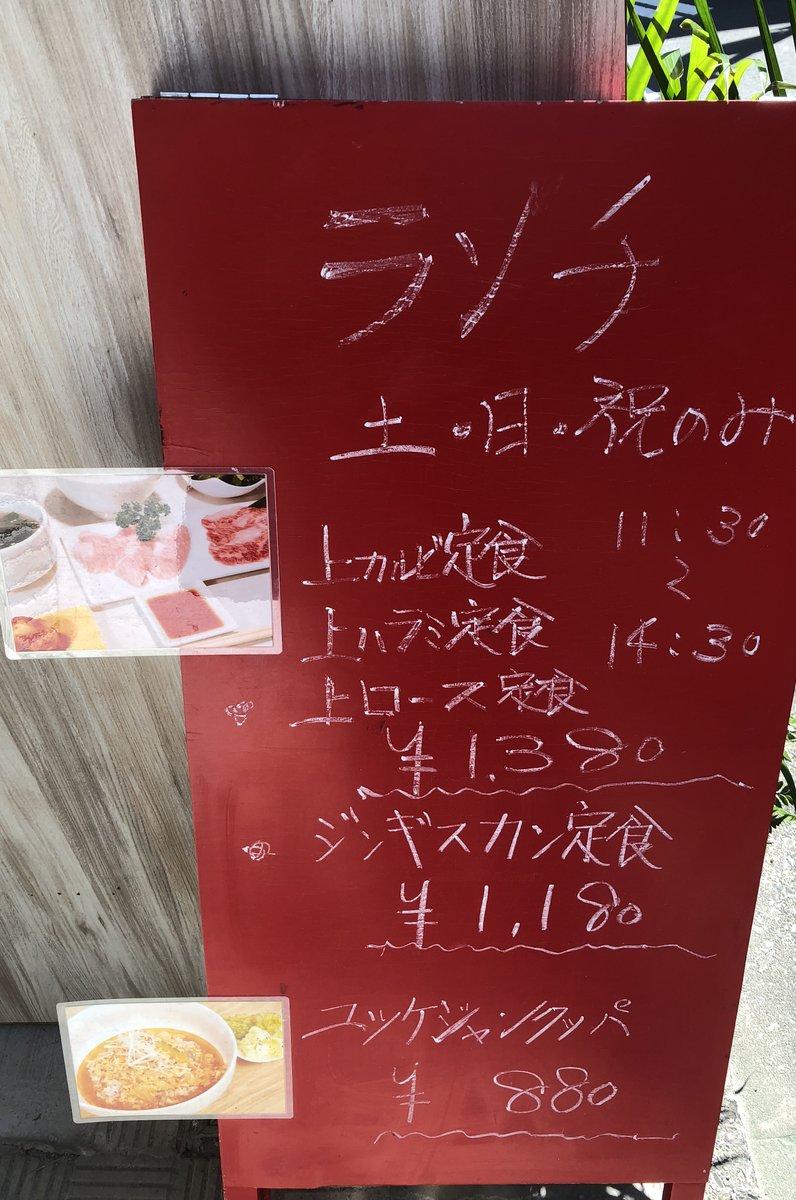 ランチ
土・日・祝のみ
11:30
〜
14:30
上カルビ定食
上ハラミ定食
上ロース定食
¥1.380
ジンギスカン定食
¥1,180
ユッケジャンクッパ
¥ 880